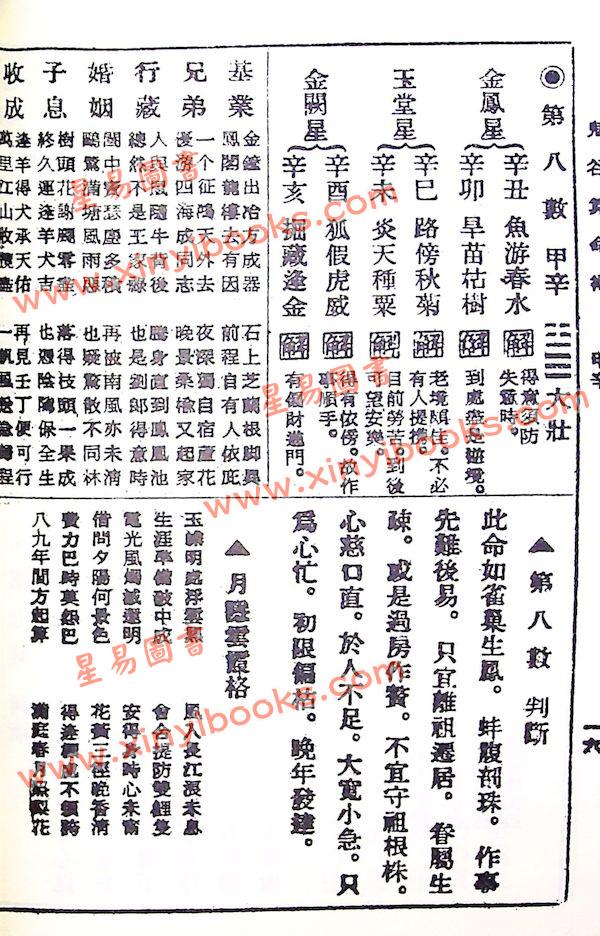 鬼谷算命術
◉第八數 甲辛 大壯
金鳳星
辛丑 魚游春水 解 得意須防失意時。
辛卯 旱苗枯樹 解 到處應是逆境。
玉堂星
辛巳 路傍秋菊 解 老境頗佳。不必有人提携。
辛未 炎天種粟 解 目前勞苦。到後可望安樂。
金闕星
辛酉 狐假虎威 解 得有依傍。故作事順手。
辛亥 掘藏逢金 解 有偏財進門。
基業
金鐘出冶方成器 石上芝蘭根脚異
鳳閣龍樓去有因 前程自有人依庇
兄弟
一个征鴻天外去 夜深獨自宿蘆花
優游四海成同志 晚景桑榆又起家
行藏
人與恩隨牛背後 騰身直到鳳凰池
總然不是王家 也是劉郎得意時
婚姻
閨中寶瑟塵多積 再被南風亦未清
鷗驚滿塘風雨 也疑驚散不同林
子息
樹頭花謝 零 落得枝頭一果成
終久運逢羊犬吉 也憑陰隲保全生
收成
逢羊得犬承天佑 再見壬丁便可行
萬里江山收 一帆風 程
▲第八數 判斷
此命如雀巢生鳳。蚌腹剖珠。作事
先難後易。只宜離祖遷居。眷屬生
疎。或是過房作贅。不宜守祖根株。
心慈口直。於人不足。大寬小急。只
爲心忙。初限偏枯。晚年發達。
▲月 雲 格
玉 明處浮雲 風入長江浪未息
生涯 破中成 會合提防雙鯉隻
電光風燭滅還明 安得 時心未
借問夕陽何景色 花黃三徑晚香清
費力巴時莫怨巴 得逢 處不須誇
八九年間方起算 滿庭春 梨花
一六
星易圖書
www.xinyibooks.com
星易圖書
www.xinyibooks.com
星易圖書
www.xinyibooks.com